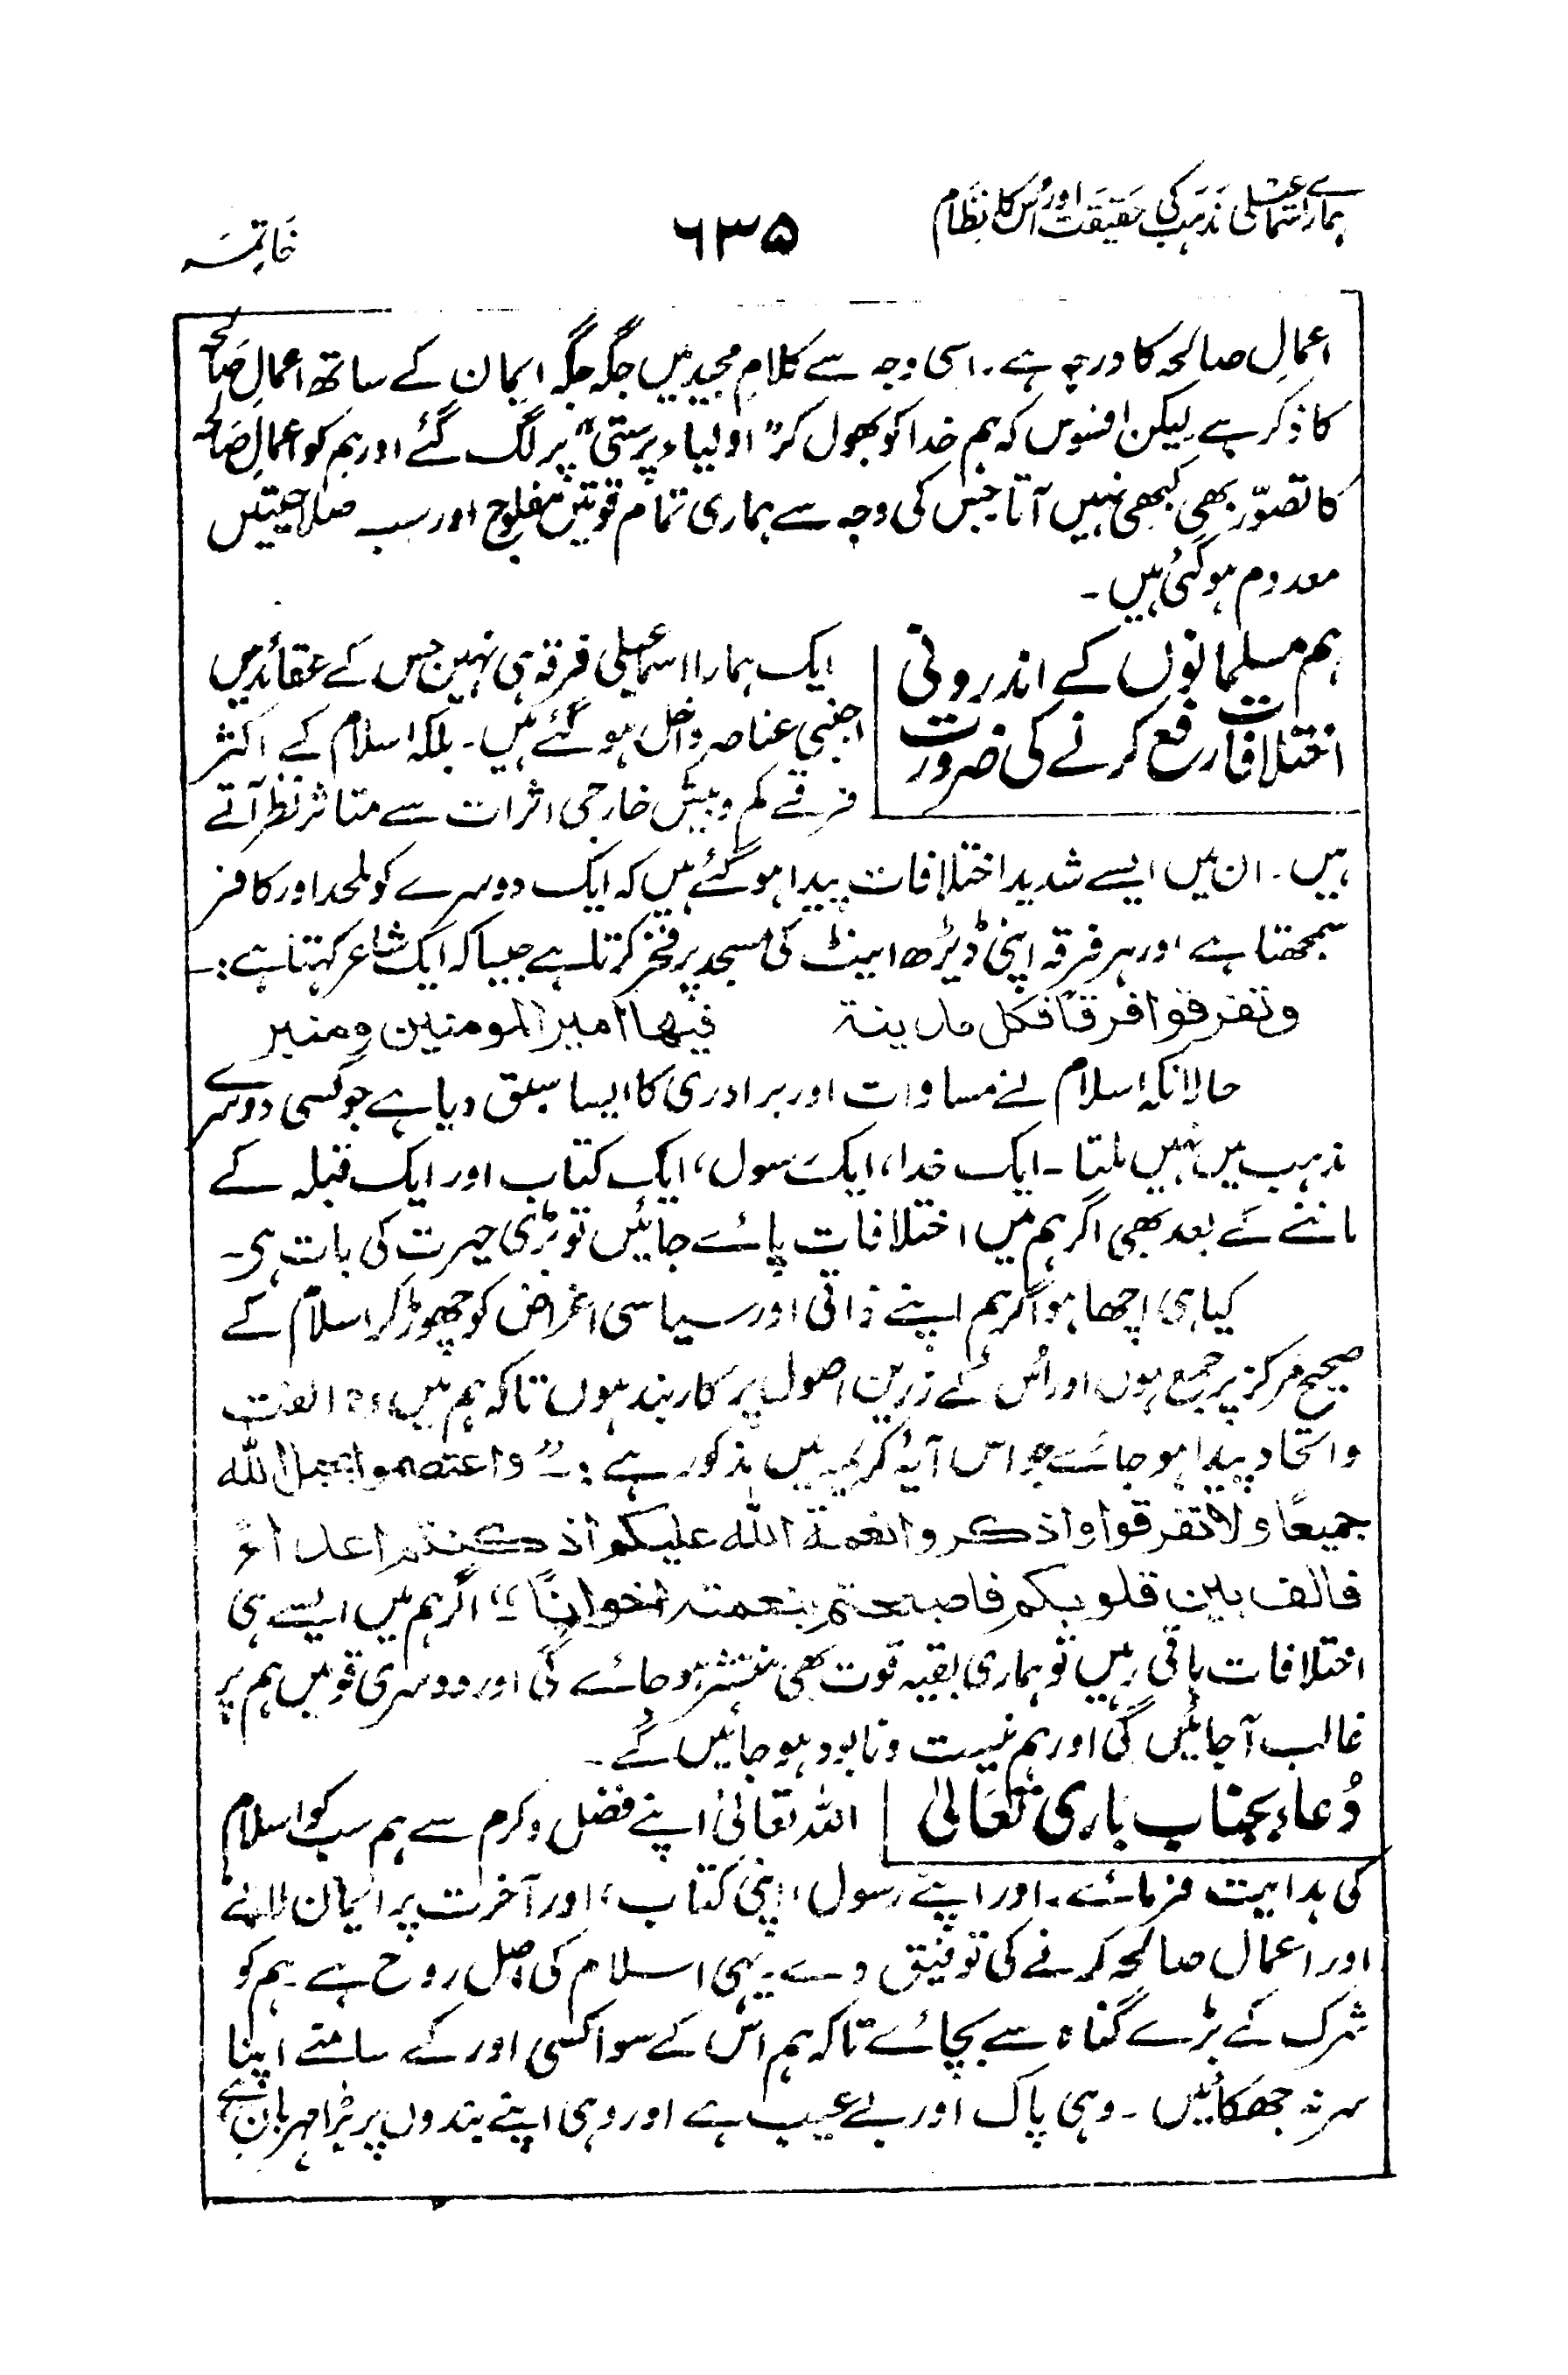 ہمارے اسماعیلی مذہب کی حقیقت اور اُس کا نظام
۶۳۵
خاتمہ
اعمالِ صالحہ کا درجہ ہے۔ اسی وجہ سے کلامِ مجید میں جگہ جگہ ایمان کے ساتھ اعمالِ صالحہ
کا ذکر ہے لیکن افسوس کہ ہم خدا کو بھول کر ”اولیاء پرستی“ پر لگ گئے اور ہم کو اعمالِ صالحہ
کا تصوّر بھی کبھی نہیں آتا جس کی وجہ سے ہماری تمام قوتیں مفلوج اور سب صلاحیتیں
معدوم ہوگئی ہیں۔
ہم مسلمانوں کے اندرونی
اختلافات رفع کرنے کی ضرورت
ایک ہمارا اسماعیلی فرقہ ہی نہیں جس کے عقائد میں
اجنبی عناصر داخل ہو گئے ہیں۔ بلکہ اسلام کے اکثر
فرقے کم و بیش خارجی اثرات سے متاثر نظر آتے
ہیں۔ ان میں ایسے شدید اختلافات پیدا ہو گئے ہیں کہ ایک دوسرے کو ملحد اور کافر
سمجھتا ہے اور ہر فرقہ اپنی ڈیڑھ اینٹ کی مسجد پر فخر کرتا ہے جیسا کہ ایک شاعر کہتا ہے:۔
وتفرقوا فرقاً فکل مدینۃ فیھا امیر المومنین ومنبر
حالانکہ اسلام نے مساوات اور برادری کا ایسا سبق دیا ہے جو کسی دوسرے
مذہب میں نہیں ملتا۔ ایک خدا، ایک رسول، ایک کتاب اور ایک قبلہ کے
ماننے کے بعد بھی اگر ہم میں اختلافات پائے جائیں تو بڑی حیرت کی بات ہی۔
کیا ہی اچھا ہو اگر ہم اپنے ذاتی اور سیاسی اغراض کو چھوڑ کر اسلام کے
صحیح مرکز پر جمع ہوں اور اُس کے زرین اصول پر کاربند ہوں تاکہ ہم میں وہ الفت
و اتحاد پیدا ہو جائے جو اس آیۂ کریمہ میں مذکور ہے:۔ ”واعتصموا بحبل اللہ
جمیعًا ولا تفرقوا واذکروا نعمۃ اللہ علیکم اذ کنتم اعداءً
فالف بین قلوبکم فاصبحتم بنعمتہ اخوانًا“ اگر ہم میں ایسے ہی
اختلافات باقی رہیں تو ہماری بقیہ قوت بھی منتشر ہو جائے گی اور دوسری قومیں ہم پر
غالب آجائیں گی اور ہم نیست و نابود ہو جائیں گے۔
دُعاء بجناب باری تعَالیٰ
اللہ تعالیٰ اپنے فضل و کرم سے ہم سب کو اسلام
کی ہدایت فرمائے۔ اور اپنے رسول، اپنی کتاب، اور آخرت پر ایمان لانے
اور اعمال صالحہ کرنے کی توفیق دے۔ یہی اسلام کی اصل روح ہے۔ ہم کو
شرک کے بڑے گناہ سے بچائے تاکہ ہم اس کے سوا کسی اور کے سامنے اپنا
سر نہ جھکائیں۔ وہی پاک اور بے عیب ہے اور وہی اپنے بندوں پر بڑا مہربان ہے